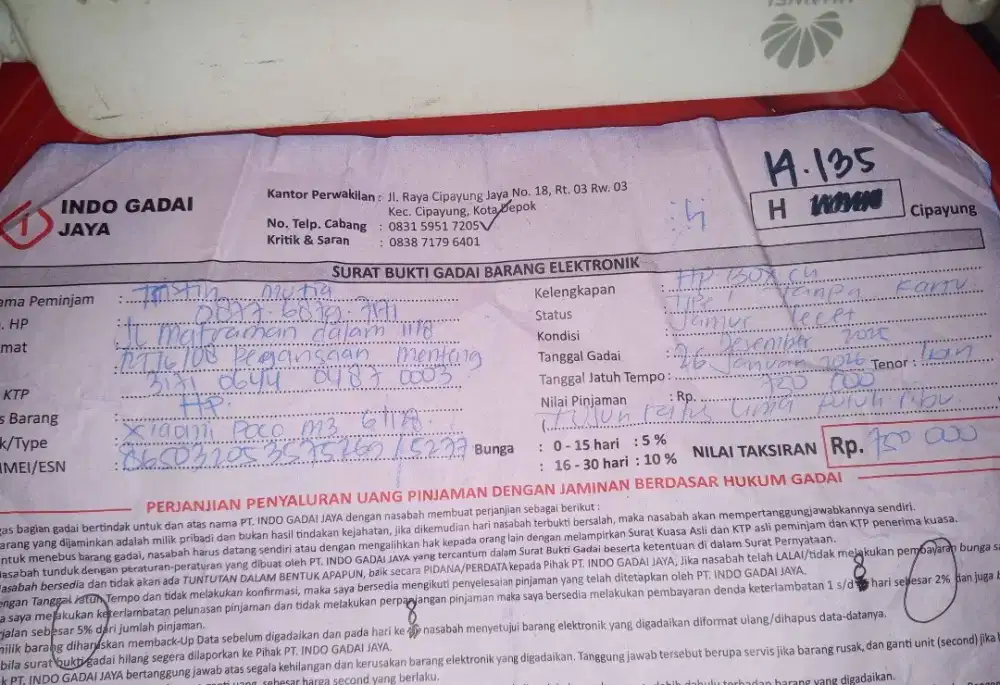 H.135
INDO GADAI JAYA
Kantor Perwakilan : Jl. Raya Cipayung Jaya No. 18, Rt. 03 Rw. 03
Kec. Cipayung, Kota Depok
No. Telp. Cabang : 0831 5951 7205
Kritik & Saran : 0838 7179 6401
H Cipayung
SURAT BUKTI GADAI BARANG ELEKTRONIK
ama Peminjam : mutia
. HP : 0877. 6879. 7171
mat : Jl matraman dalam
RT16/08 Pegangsaan menteng
KTP 3171 0644 0487 0003
s Barang : HP.
k/Type : Xiaomi Poco m3 6/128
IMEI/ESN :
Kelengkapan : HP
Status : Tanpa Kartu
Kondisi : Jamur lecet
Tanggal Gadai : Desember 2025
Tanggal Jatuh Tempo : 26 Januari 2026 Tenor :
Nilai Pinjaman : Rp. 750 000
Tujuh ratus lima puluh ribu
Bunga : 0 - 15 hari : 5 %
: 16 - 30 hari : 10 %
NILAI TAKSIRAN Rp. 750 000
PERJANJIAN PENYALURAN UANG PINJAMAN DENGAN JAMINAN BERDASAR HUKUM GADAI
gas bagian gadai bertindak untuk dan atas nama PT. INDO GADAI JAYA dengan nasabah membuat perjanjian sebagai berikut :
arang yang dijaminkan adalah milik pribadi dan bukan hasil tindakan kejahatan, jika dikemudian hari nasabah terbukti bersalah, maka nasabah akan mempertanggungjawabkannya sendiri.
ntuk menebus barang gadai, nasabah harus datang sendiri atau dengan mengalihkan hak kepada orang lain dengan melampirkan Surat Kuasa Asli dan KTP asli peminjam dan KTP penerima kuasa.
asabah tunduk dengan peraturan-peraturan yang dibuat oleh PT. INDO GADAI JAYA yang tercantum dalam Surat Bukti Gadai beserta ketentuan di dalam Surat Pernyataan.
asabah bersedia dan tidak akan ada TUNTUTAN DALAM BENTUK APAPUN, baik secara PIDANA/PERDATA kepada Pihak PT. INDO GADAI JAYA, Jika nasabah telah LALAI/tidak melakukan pembayaran bunga sa
engan Tanggal Jatuh Tempo dan tidak melakukan konfirmasi, maka saya bersedia mengikuti penyelesaian pinjaman yang telah ditetapkan oleh PT. INDO GADAI JAYA.
a saya melakukan keterlambatan pelunasan pinjaman dan tidak melakukan perpanjangan pinjaman maka saya bersedia melakukan pembayaran denda keterlambatan 1 s/d 8 hari sebesar 2% dan juga b
jalan sebesar 5% dari jumlah pinjaman.
milik barang diharuskan memback-Up Data sebelum digadaikan dan pada hari ke 8 nasabah menyetujui barang elektronik yang digadaikan diformat ulang/dihapus data-datanya.
bila surat bukti gadai hilang segera dilaporkan ke Pihak PT. INDO GADAI JAYA.
k PT. INDO GADAI JAYA bertanggung jawab atas segala kehilangan dan kerusakan barang elektronik yang digadaikan. Tanggung jawab tersebut berupa servis jika barang rusak, dan ganti unit (second) jika b
sebesar harga second yang berlaku.
barang yang digadaikan.